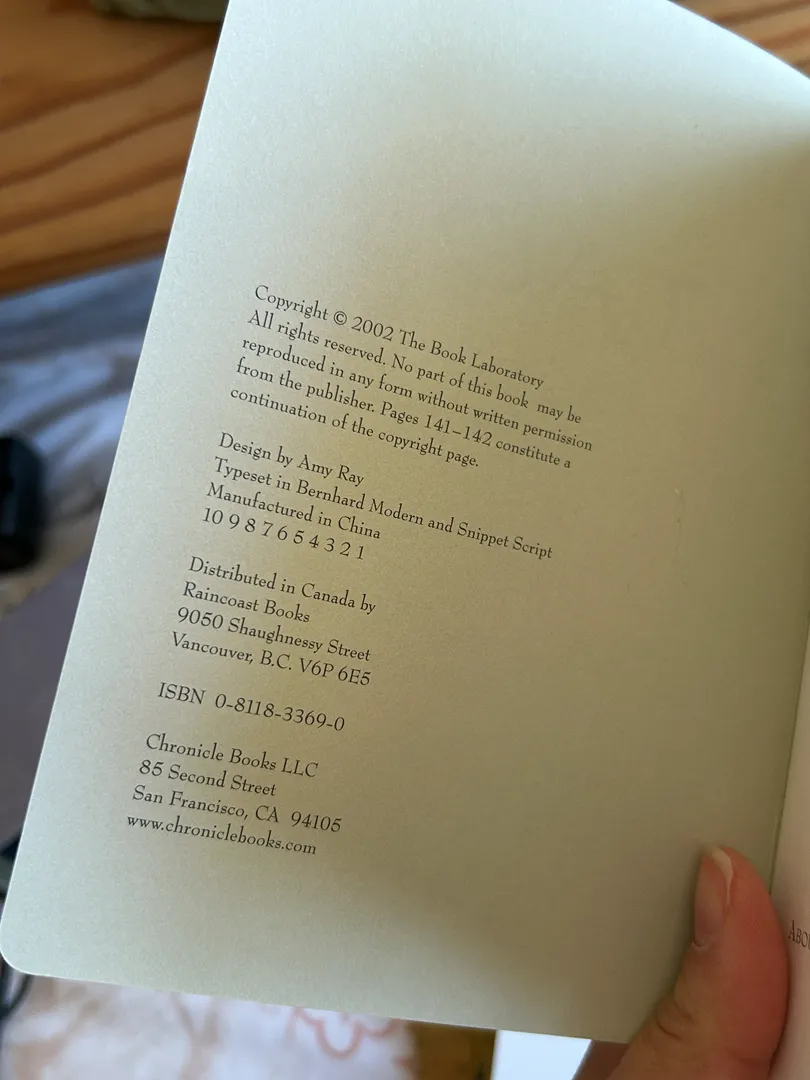 Copyright © 2002 The Book Laboratory
All rights reserved. No part of this book may be
reproduced in any form without written permission
from the publisher. Pages 141–142 constitute a
continuation of the copyright page.
Design by Amy Ray
Typeset in Bernhard Modern and Snippet Script
Manufactured in China
10 9 8 7 6 5 4 3 2 1
Distributed in Canada by
Raincoast Books
9050 Shaughnessy Street
Vancouver, B.C. V6P 6E5
ISBN 0-8118-3369-0
Chronicle Books LLC
85 Second Street
San Francisco, CA 94105
www.chroniclebooks.com